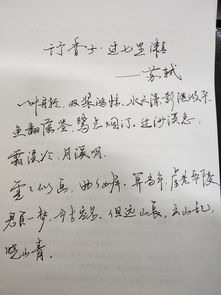 行香子·过七里濑
——苏轼
一叶舟轻，双桨鸿惊，水天清，影湛波平。
鱼翻藻鉴，鹭点烟汀，过沙溪急，
霜溪冷，月溪明。
重重似画，曲曲如屏，算当年，虚老严陵
君臣一梦，今古空名，但远山长，云山乱，
晓山青。